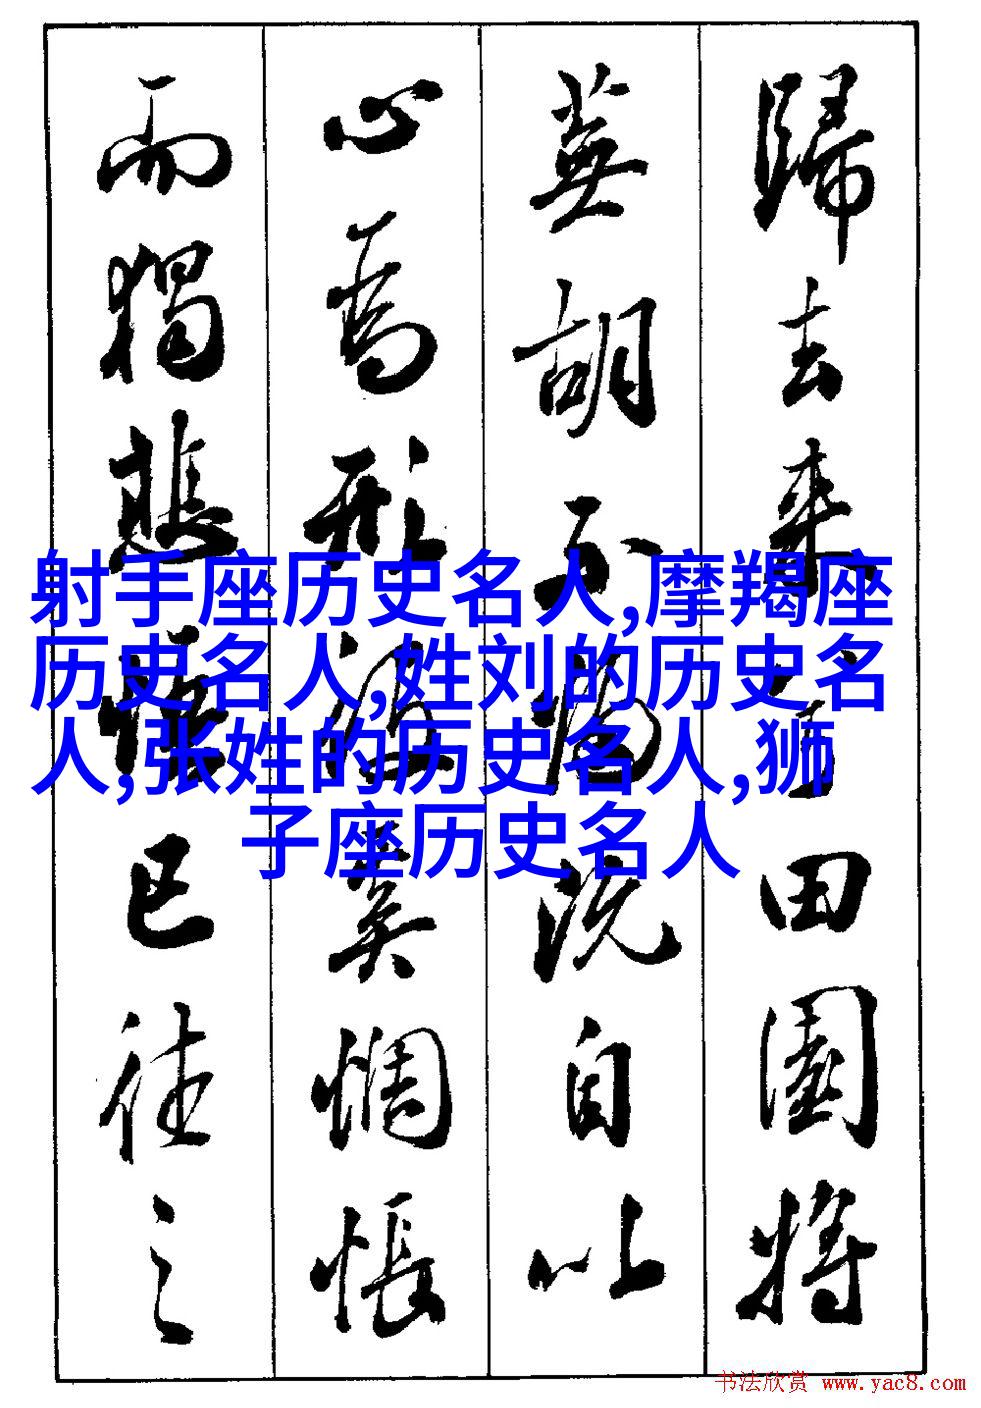 歸去來兮田園將
蕪胡不歸既自以
心為形役奚惆悵
而獨悲已往之
射手座历史名人,摩羯座
历史名人,姓刘的历史名
人,张姓的历史名人,狮
子座历史名人
书法欣赏 www.yac8.com